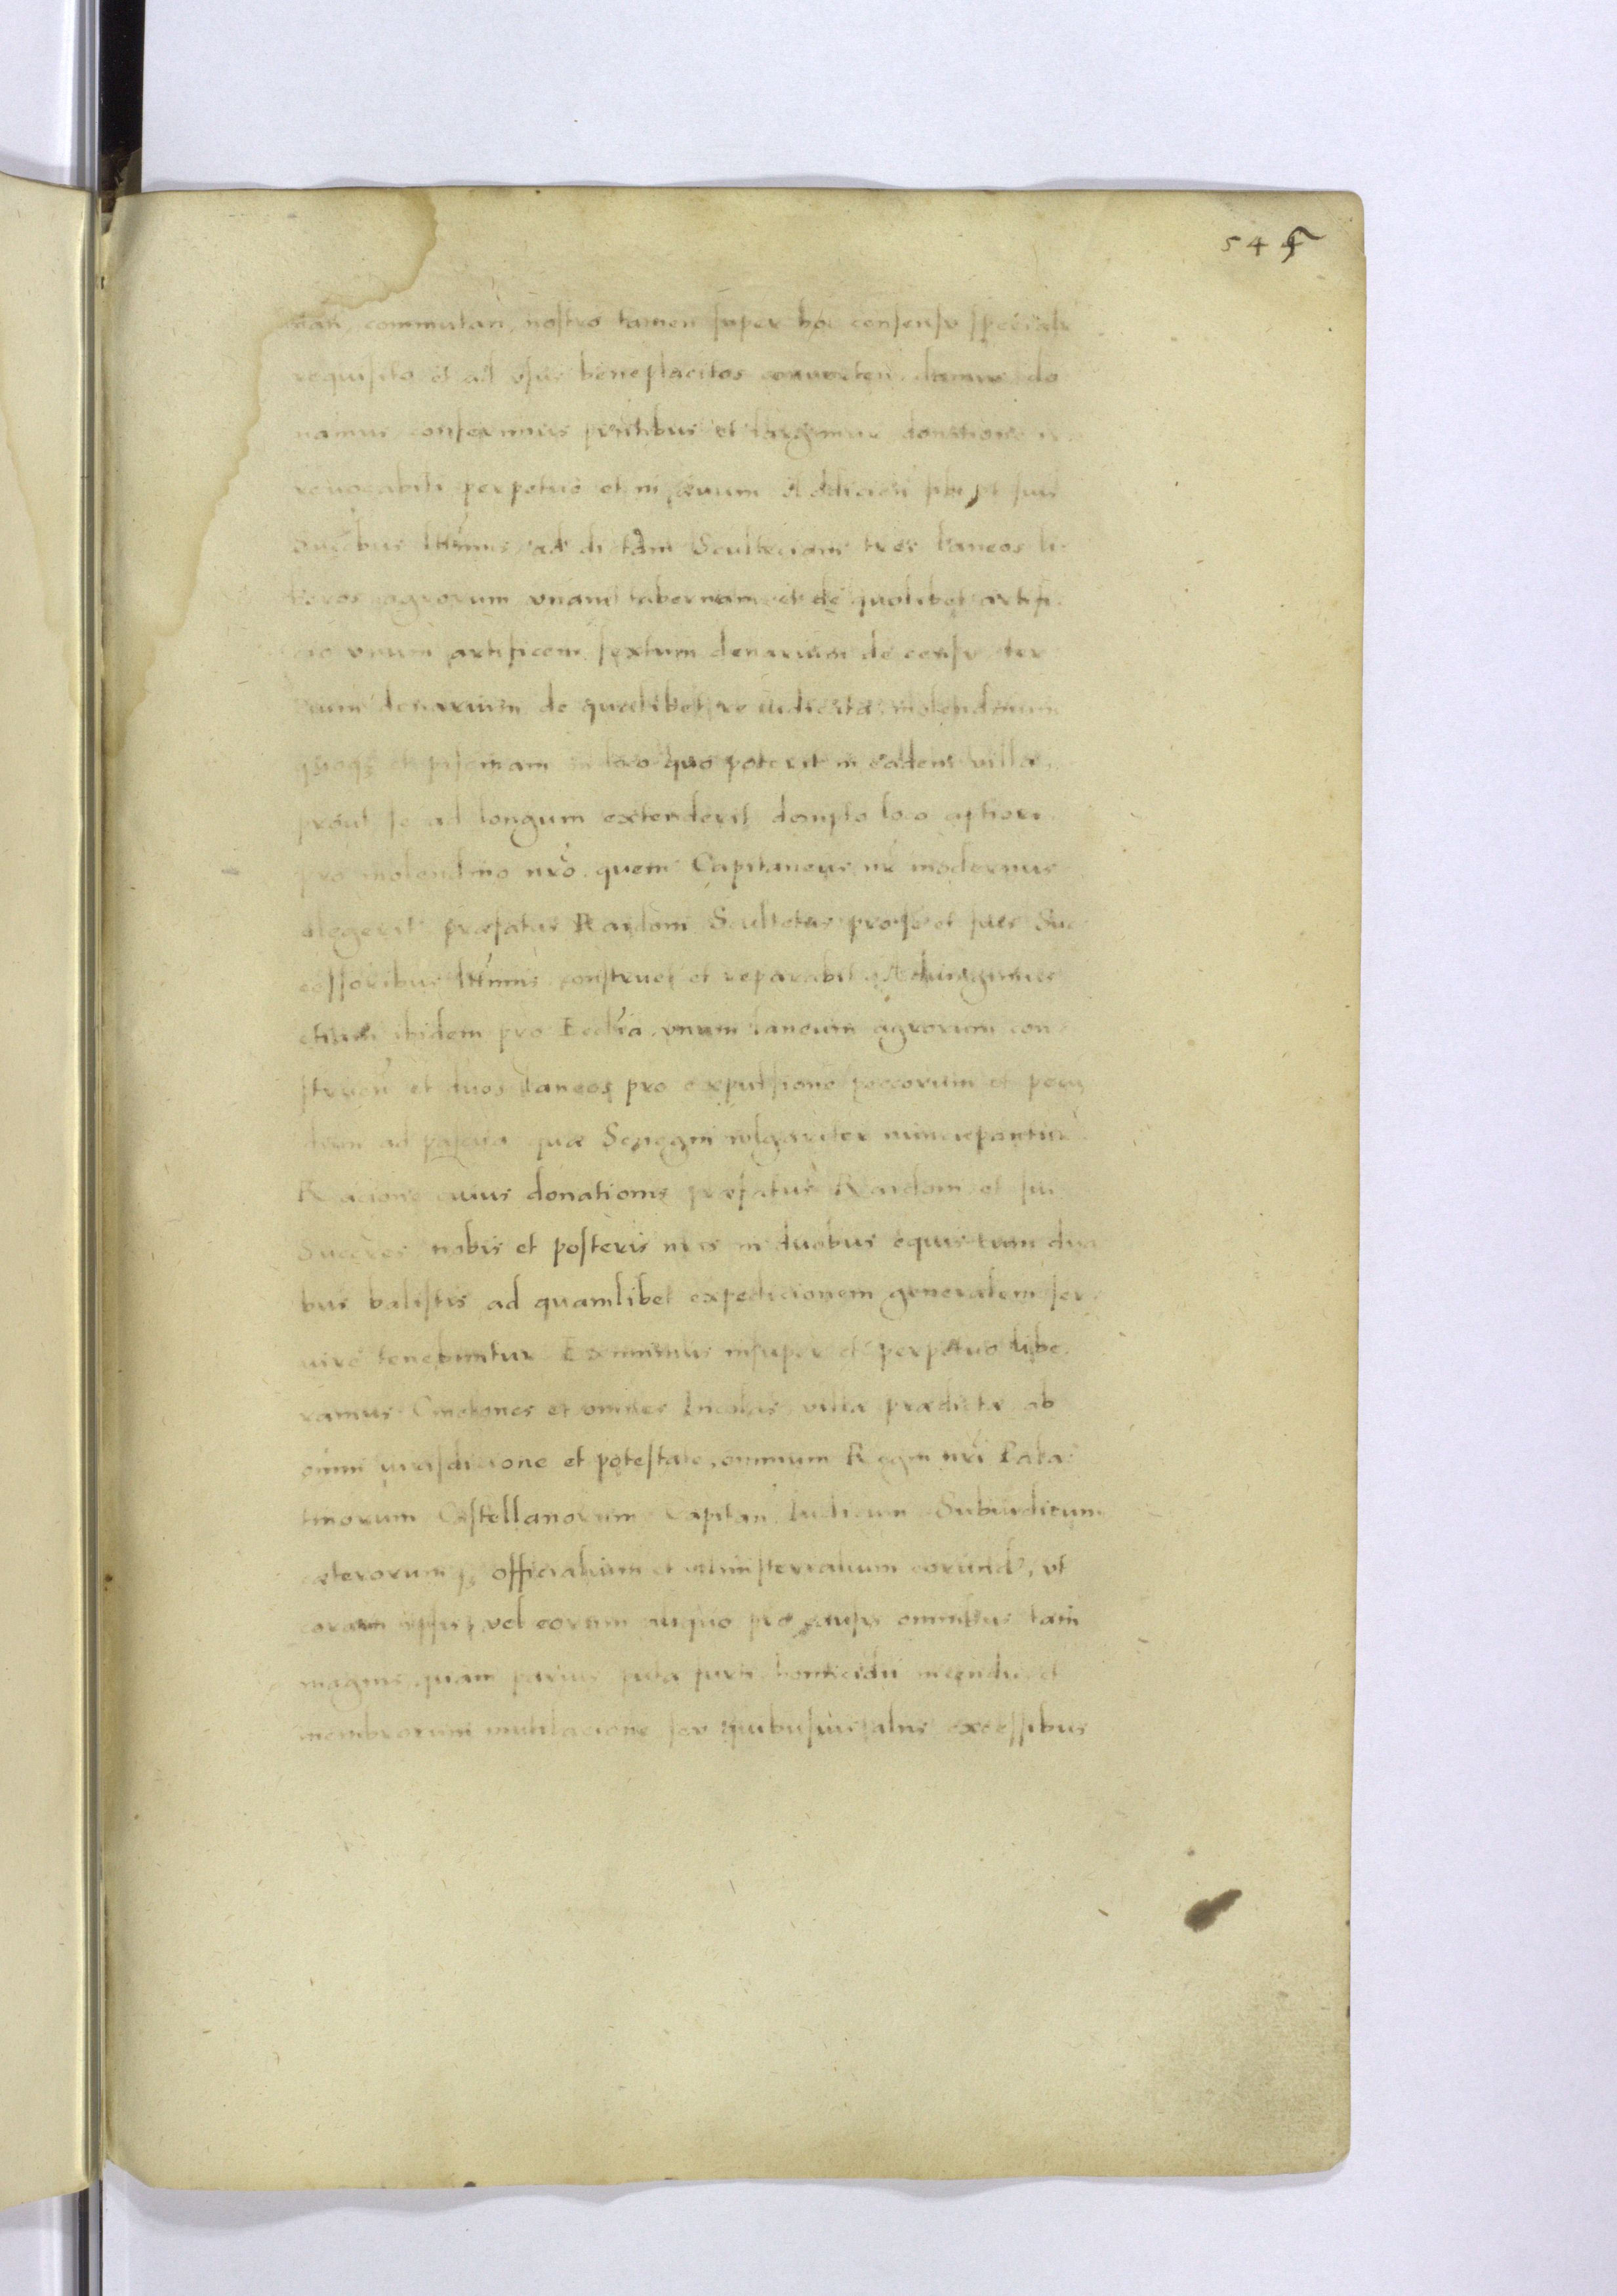 544
commutan, nostro tamen super hoc consensu speciali
requisito et ad vsus beneplacitos conuerten. damus do
namus conferimus pntibus et largimur donatione
reuocabili perpetuo et in æuum Addicien sibi et suis
Succ̃bus lttimis ad dictam Sculteciam tres laneos li
beros agrorum vnam tabernam et de quolibet artifi
cio vnum artificem sextum denarium de censu ter
cium denarium de qualibet re iudicata, molendinum
quoqȝ et piscinam in loco quo poterit in eadem villa,
prout se ad longum extenderit dempto loco aptiori
pro molendino nrõ. quem Capitaneus nr̃ modernus
elegerit præfatus Raydom Scultetus pro se et suis Suc
cessoribus lttimis construet et reparabit Adiungimus
etiam ibidem pro Eccl̃ia vnum laneum agrorum con
struen̄ et duos laneos pro expulsione peccorum et pecu
dum ad pascua quæ vulgariter nuncupantur
Racione cuius donationis præfatus Raidom et sui
Succ̃res nobis et posteris nr̃is in duobus equis cum dua
bus balistis ad quamlibet expedicionem generalem ser
uire tenebuntur Eximimus insuper et perpetuo libe
ramus Cmetones et omnes Incolas villæ prædictæ ab
omni iurisdicione et potestate, omnium Regni nrĩ Pala
tinorum Castellanorum Capitan Iudicum Subiudicum
cæterorumqȝ officialium et ministerialium eorund, vt
coram ipsis vel eorum aliquo pro causis omnibus tam
magnis, quam paruis puta furti homicidii incendii et
membrorum mutilacione seu quibusuis alijs excessibus